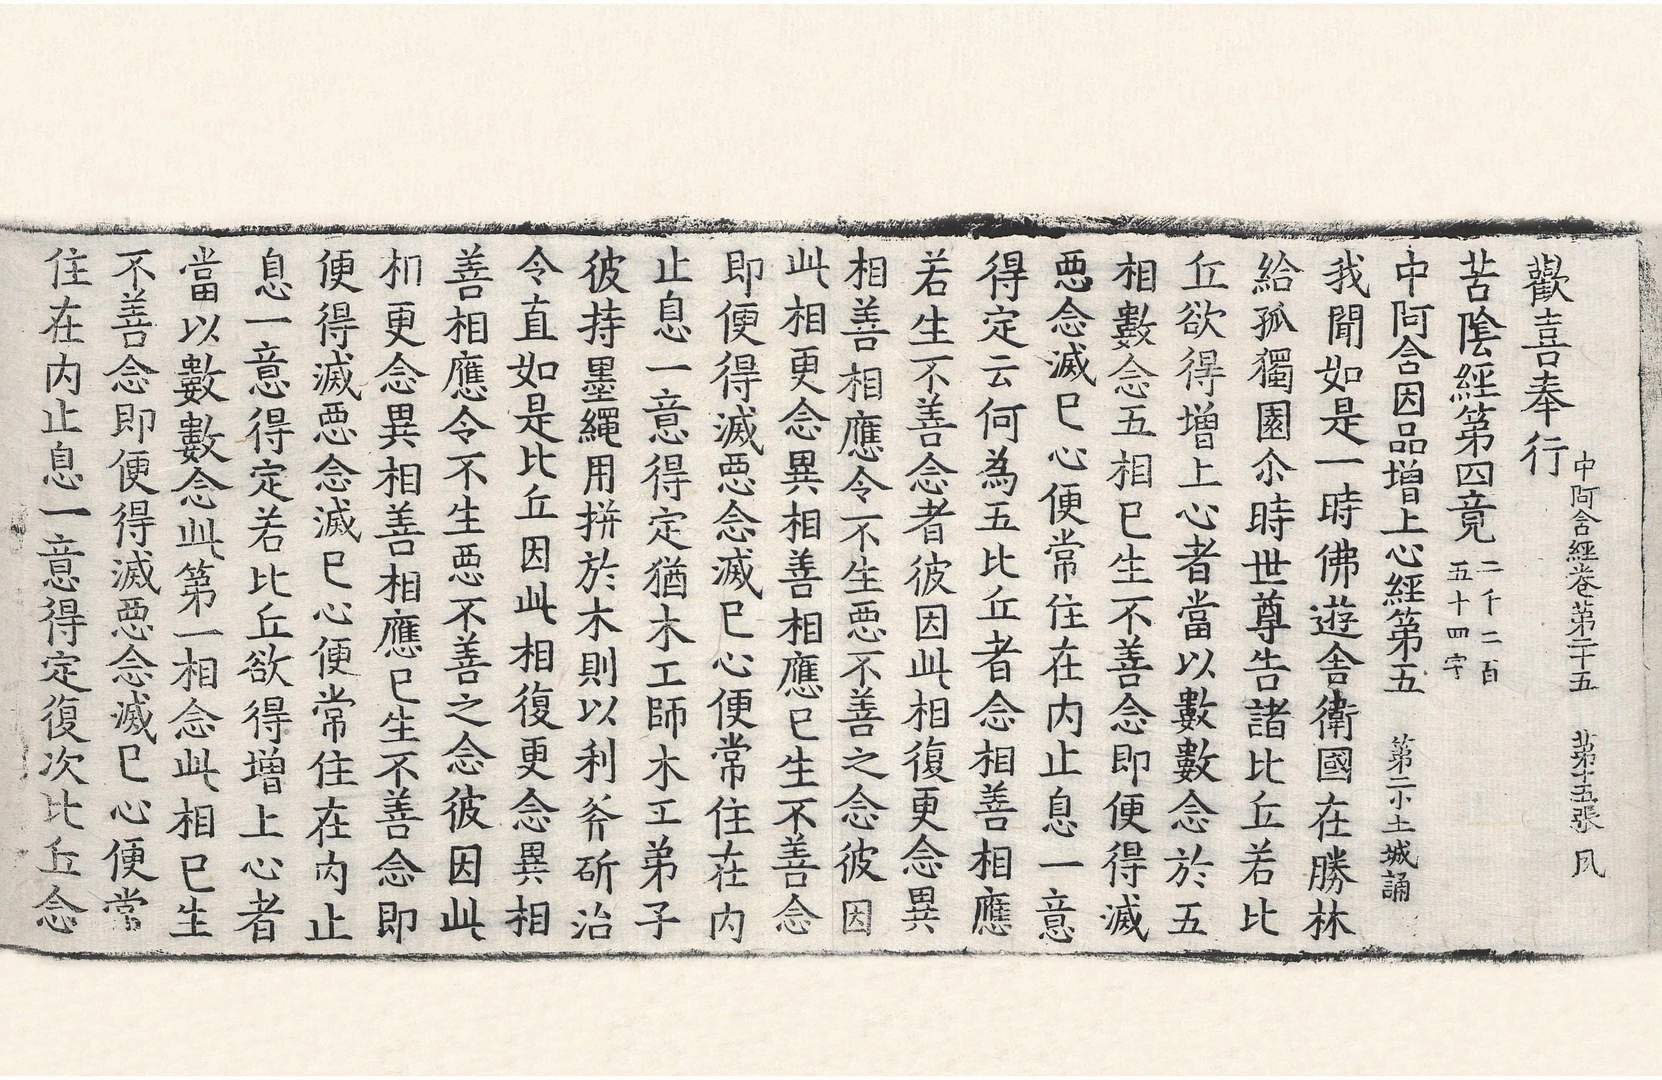 中阿含經卷第二十五 第十五張 夙
歡喜奉行
苦陰經第四竟 二千二百
五十四字
中阿含因品增上心經第五 第二小土城誦
我聞如是一時佛遊舍衛國在勝林
給孤獨園尒時世尊告諸比丘若比
丘欲得增上心者當以數數念於五
相數念五相已生不善念即便得滅
惡念滅已心便常住在內止息一意
得定云何為五比丘者念相善相應
若生不善念者彼因此相復更念異
相善相應令不生惡不善之念彼因
此相更念異相善相應已生不善念
即便得滅惡念滅已心便常住在內
止息一意得定猶木工師木工弟子
彼持墨繩用拼於木則以利斧斫治
令直如是比丘因此相復更念異相
善相應令不生惡不善之念彼因此
相更念異相善相應已生不善念即
便得滅惡念滅已心便常住在內止
息一意得定若比丘欲得增上心者
當以數數念此第一相念此相已生
不善念即便得滅惡念滅已心便常
住在內止息一意得定復次比丘念